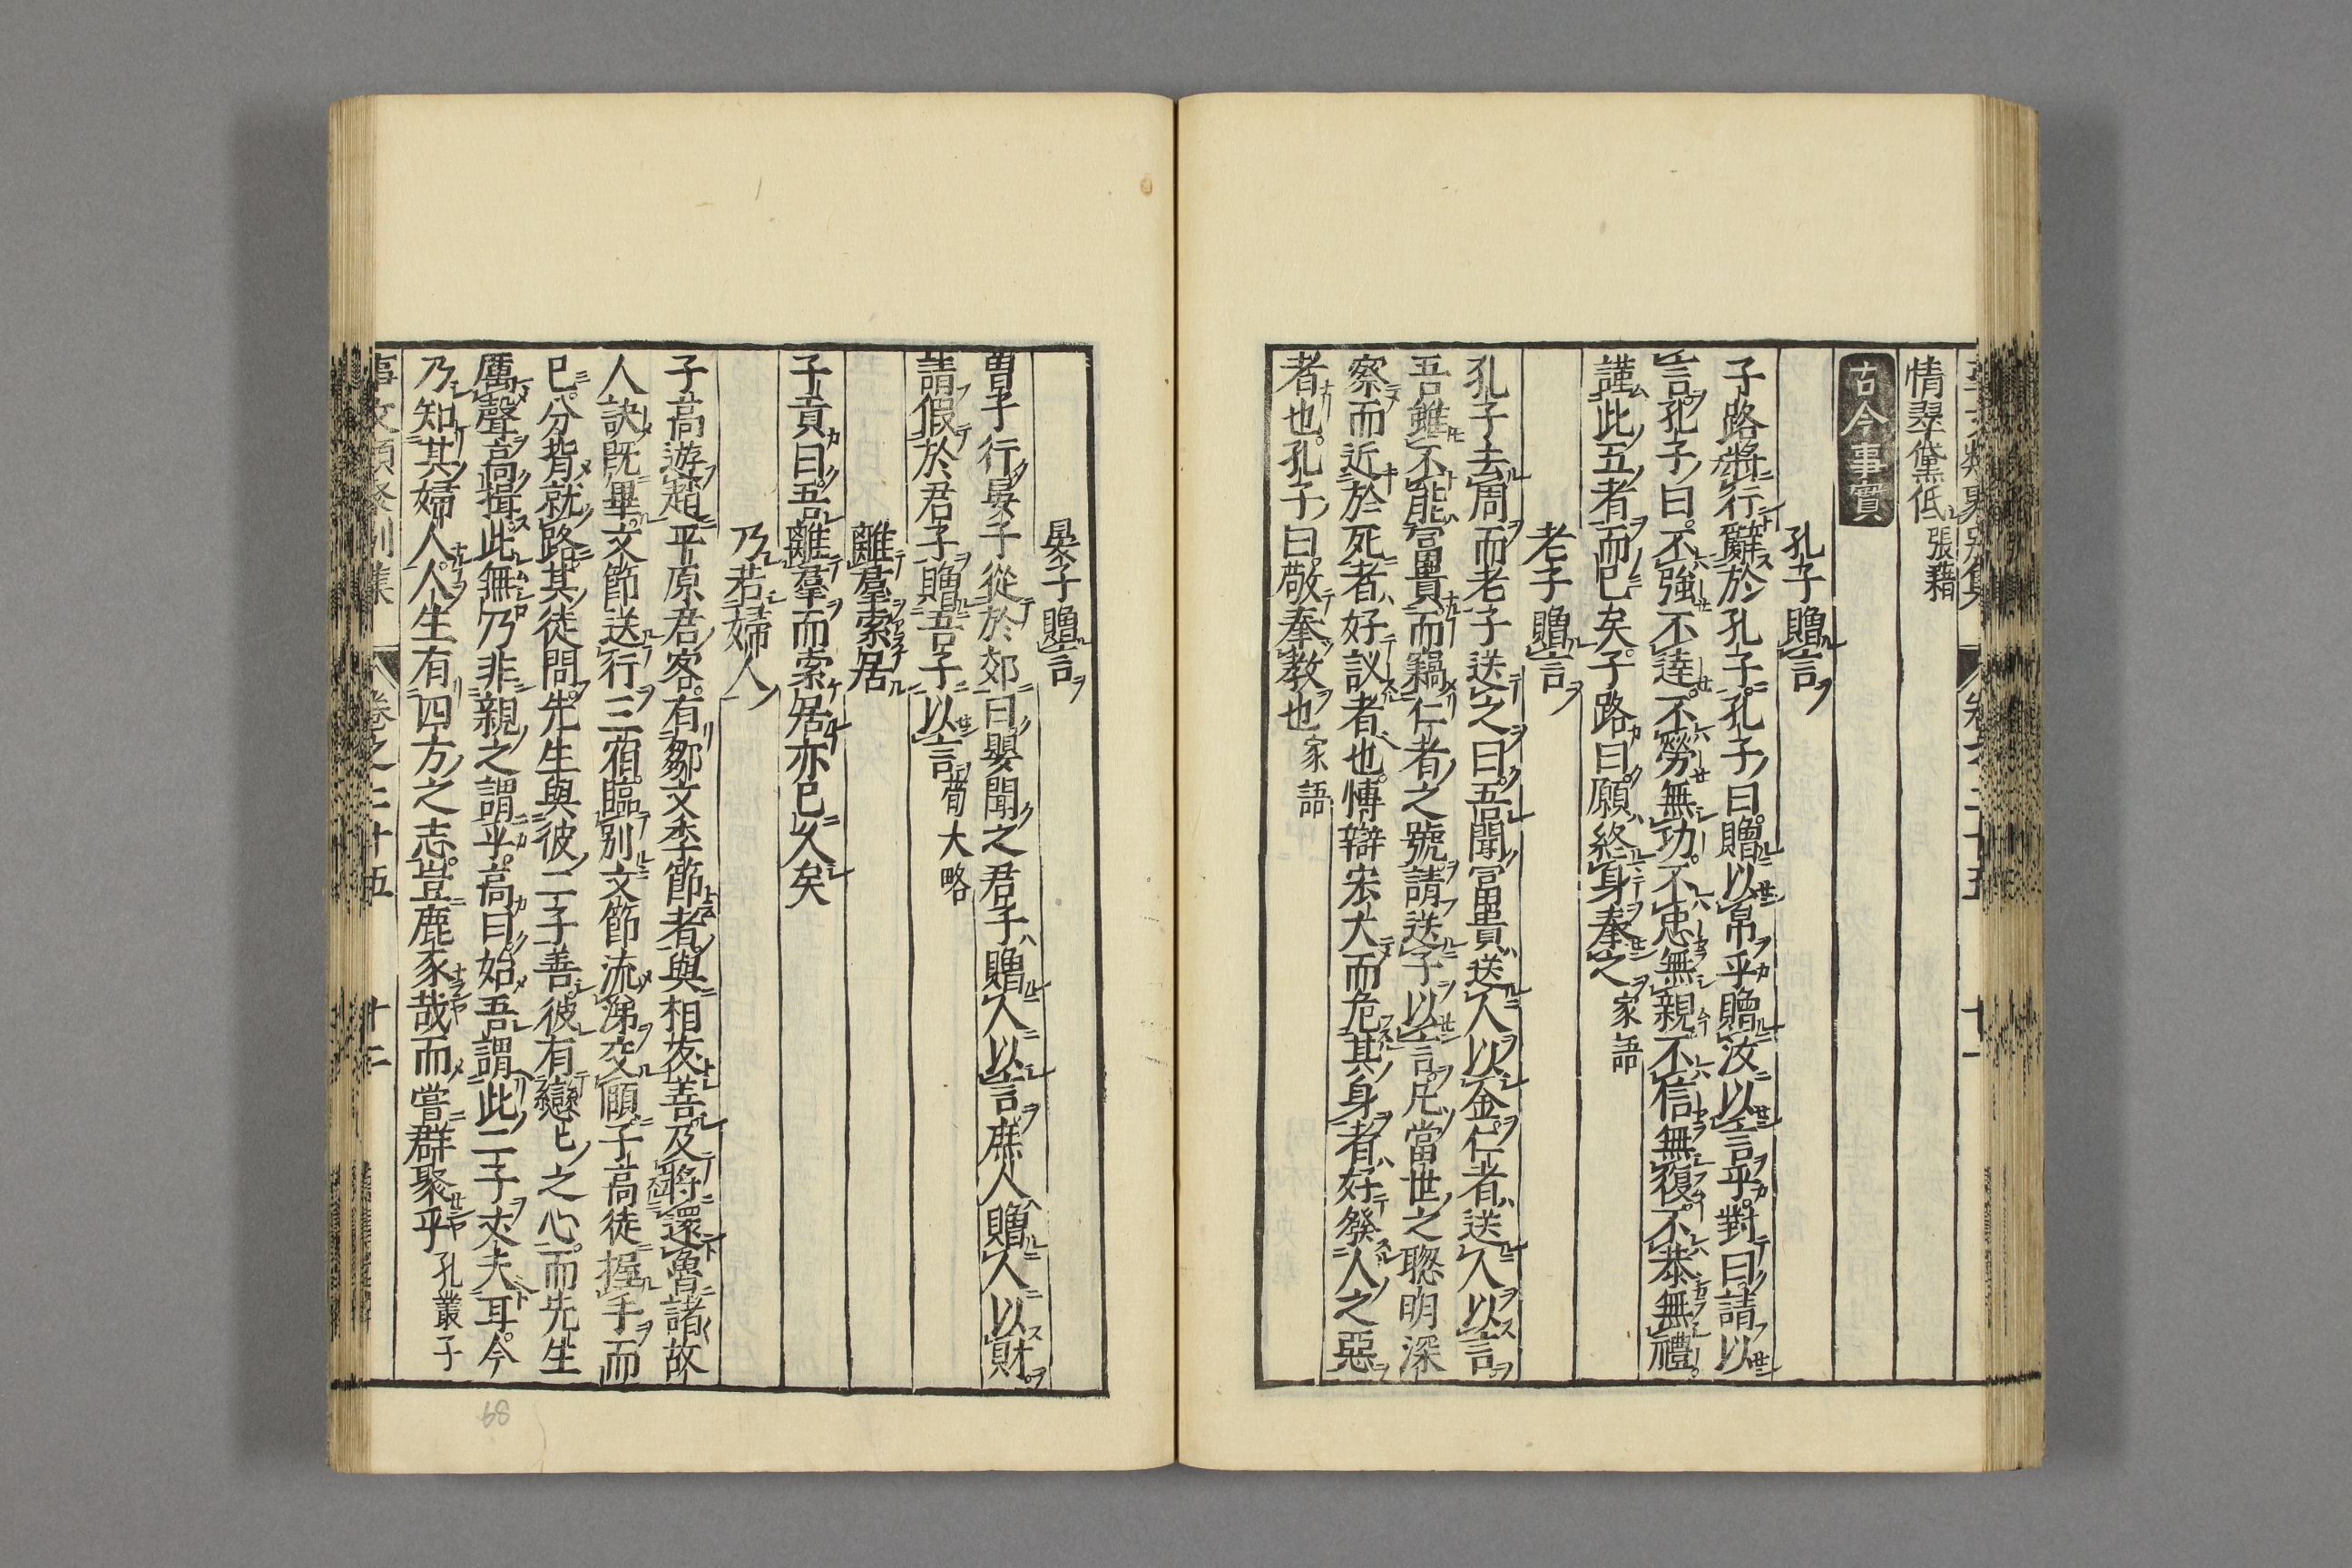 情翠黛低 張籍
古今事實
孔子贈言
子路將行辭於孔子孔子曰贈以帛乎贈汝以言乎對曰請以
言孔子曰不強不達不勞無功不忠無親不信無復不恭無禮
謹此五者而已矣子路曰願終身奉之 家語
老子贈言
孔子去周而老子送之曰吾聞富貴送人以金仁者送人以言
吾雖不能富貴而竊仁者之號請送子以言凡當世之聡明深
察而近於死者好議者也愽辯宏大而危其身者好發人之惡
者也孔子曰敬奉教也 家語
晏子贈言
曽子行晏子從於郊曰嬰聞之君子贈人以言庶人贈人以財
請假於君子贈吾子以言 荀大略
離羣索居
子貢曰吾離羣而索居亦已久矣
乃若婦人
子高游趙平原君客有鄒文季節者與相友善及將還魯諸故
人訣既畢文節送行三宿臨別文節流涕交頤子高徒握手而
已分背就路其徒問先生與彼二子善彼有戀戀之心而先生
厲聲高揖此無乃非親之謂乎高曰始吾謂此二子丈夫耳今
乃知其婦人人生有四方之志豈鹿豕哉而嘗群聚乎 孔叢子
事文類聚別集 卷之二十五 十二